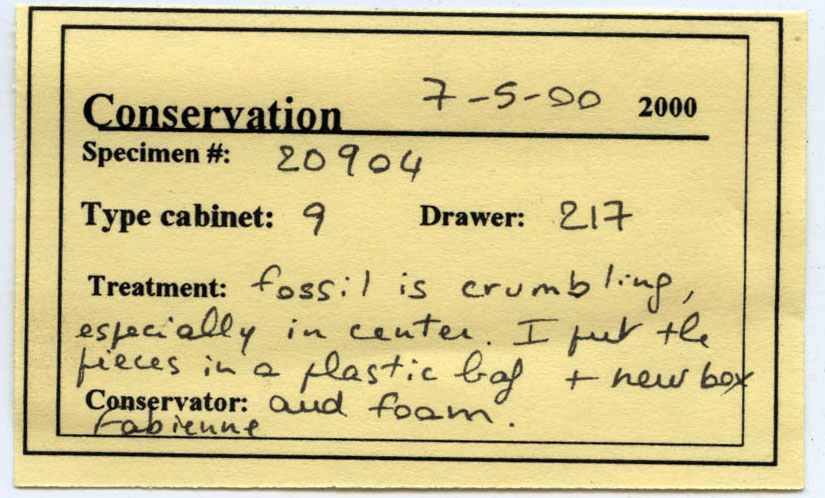 7-5-00 2000
Conservation
Specimen #: 20904
Type cabinet: 9 Drawer: 217
Treatment: fossil is crumbling,
especially in center. I put the
pieces in a plastic bag + new box
Conservator: and foam.
Fabienne